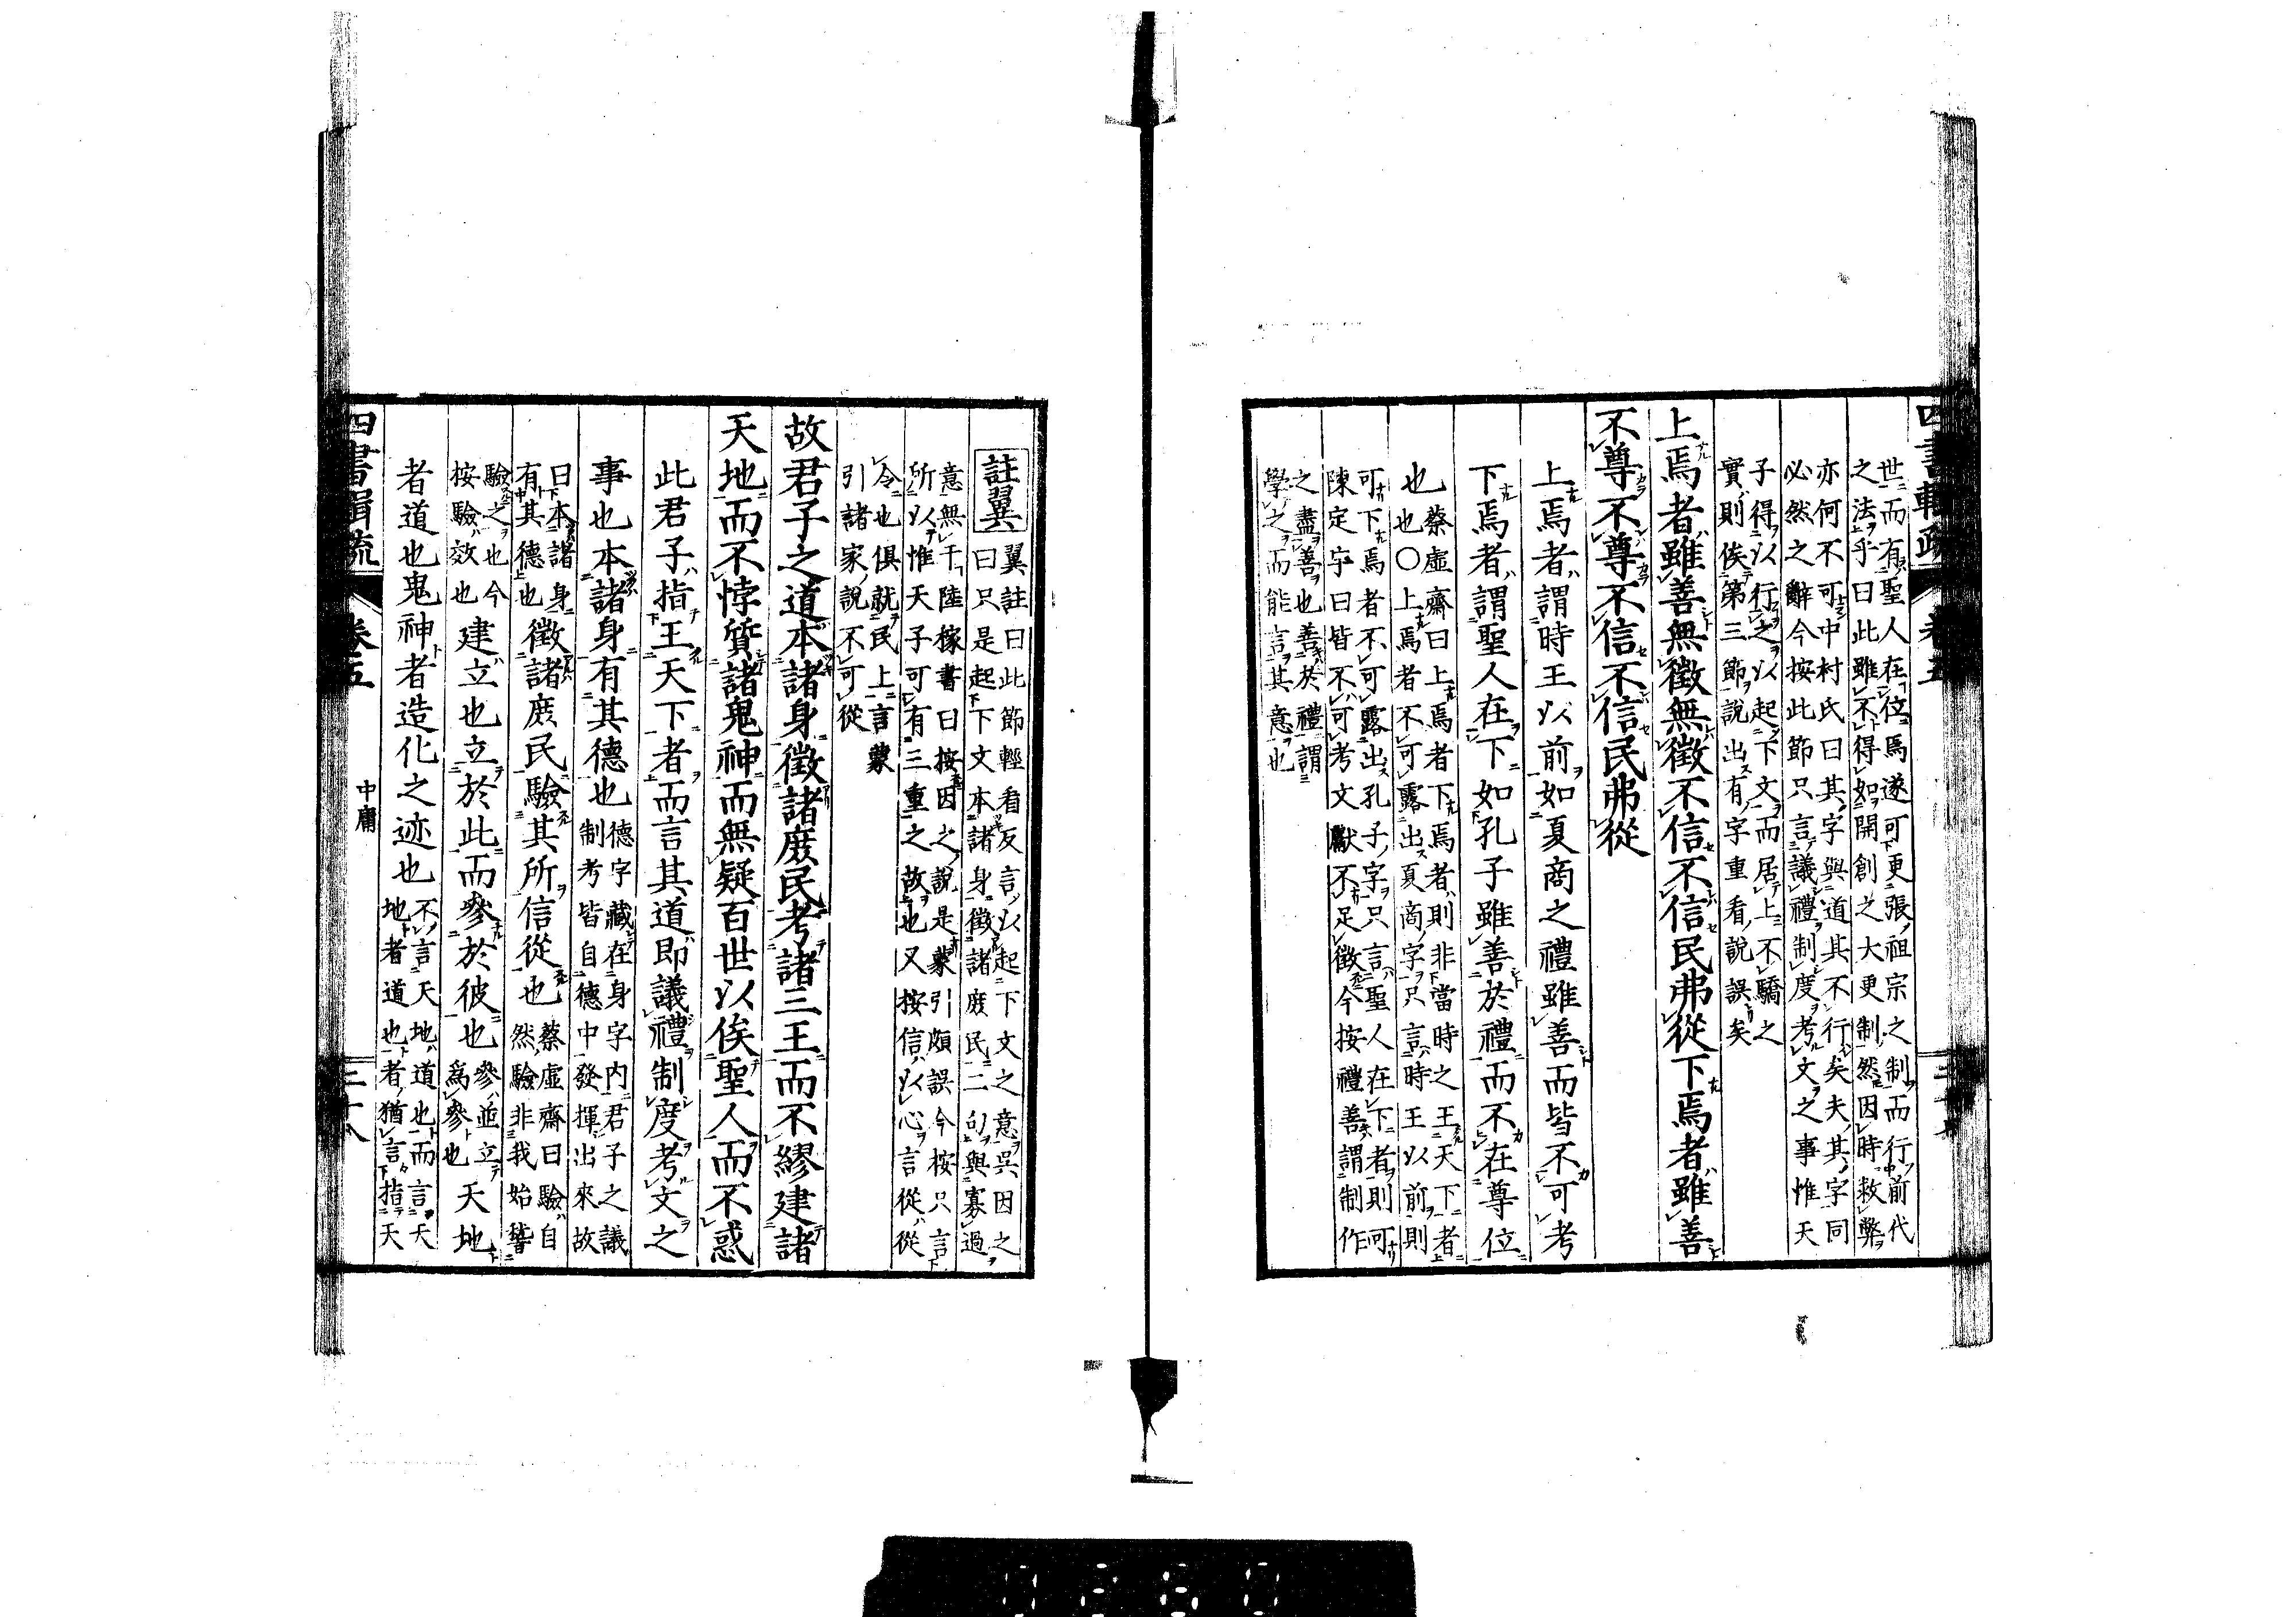 四書輯疏
卷五
世而有聖人在位焉遂可更張祖宗之制而行前代
之法乎曰此雖不得如開創之大更制然因時救弊
亦何不可中村氏曰其字與道其不行矣夫其字同
必然之辭今按此節只言議禮制度考文之事惟天
子得以行之以起下文而居上不驕之
實則俟第三節說出有字重看說誤矣
上焉者雖善無徵無徵不信不信民弗從下焉者雖善
不尊不尊不信不信民弗從
上焉者謂時王以前如夏商之禮雖善而皆不可考
下焉者謂聖人在下如孔子雖善於禮而不在尊位
也
蔡虛齋曰上焉者下焉者則非當時之王天下者
也○上焉者不可露出夏商字只言時王以前則
可下焉者不可露出孔子字只言聖人在下者則可
陳定宇曰皆不可考文獻不足徵今按禮善謂制作
之盡善也善於禮謂
學之而能言其意也
註翼
翼註曰此節輕看反言以起下文之意吳因之
曰只是起下文本諸身徵諸庶民二句與寡過
意無干陸稼書曰按因之說是蒙引頗誤今按只言
所以惟天子可有三重之故也又按信以心言從從
令也俱就民上言蒙
引諸家說不可從
故君子之道本諸身徵諸庶民考諸三王而不繆建諸
天地而不悖質諸鬼神而無疑百世以俟聖人而不惑
此君子指王天下者而言其道即議禮制度考文之
事也本諸身有其德也
德字藏在身字內君子之議
制考皆自德中發揮出來故
曰本諸身
有其德也
徵諸庶民驗其所信從也
蔡虛齋曰驗自
然驗非我始嘗
驗之也今
按驗效也
建立也立於此而參於彼也
參並立
為參也
天地
者道也鬼神者造化之迹也
不言天地道也而言天
地者道也者猶言指天
四書輯疏
卷五
中庸
三十八